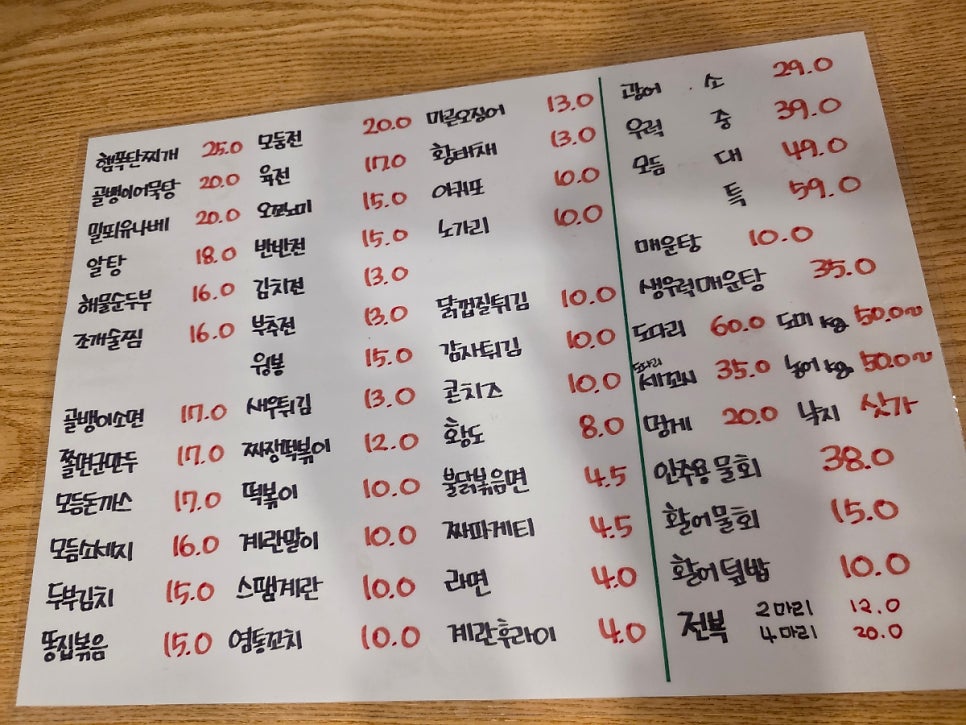 햄폭탄찌개 25.0
골뱅이어묵탕 20.0
밀띠유나베 20.0
알탕 18.0
해물순두부 16.0
조개술찜 16.0
골뱅이소면 17.0
쫄면군만두 17.0
모듬돈까스 17.0
모듬소세지 16.0
두부김치 15.0
똥집볶음 15.0
모둠전 20.0
육전 17.0
오꼬노미 15.0
반반전 15.0
김치전 13.0
부추전 13.0
윙봉 15.0
새우튀김 13.0
짜장떡볶이 12.0
떡볶이 10.0
계란말이 10.0
스팸계란 10.0
염통꼬치 10.0
마른오징어 13.0
황태채 13.0
아귀포 10.0
노가리 10.0
닭껍질튀김 10.0
감자튀김 10.0
콘치즈 10.0
황도 8.0
불닭볶음면 4.5
짜파게티 4.5
라면 4.0
계란후라이 4.0
광어 소 29.0
우럭 중 39.0
모듬 대 49.0
특 59.0
매운탕 10.0
생우럭매운탕 35.0
도다리 60.0 도미 kg 50.0~
도다리 세꼬시 35.0 농어 kg 50.0~
멍게 20.0 낙지 싯가
안주용 물회 38.0
활어물회 15.0
활어덮밥 10.0
전복 2마리 12.0
4마리 20.0